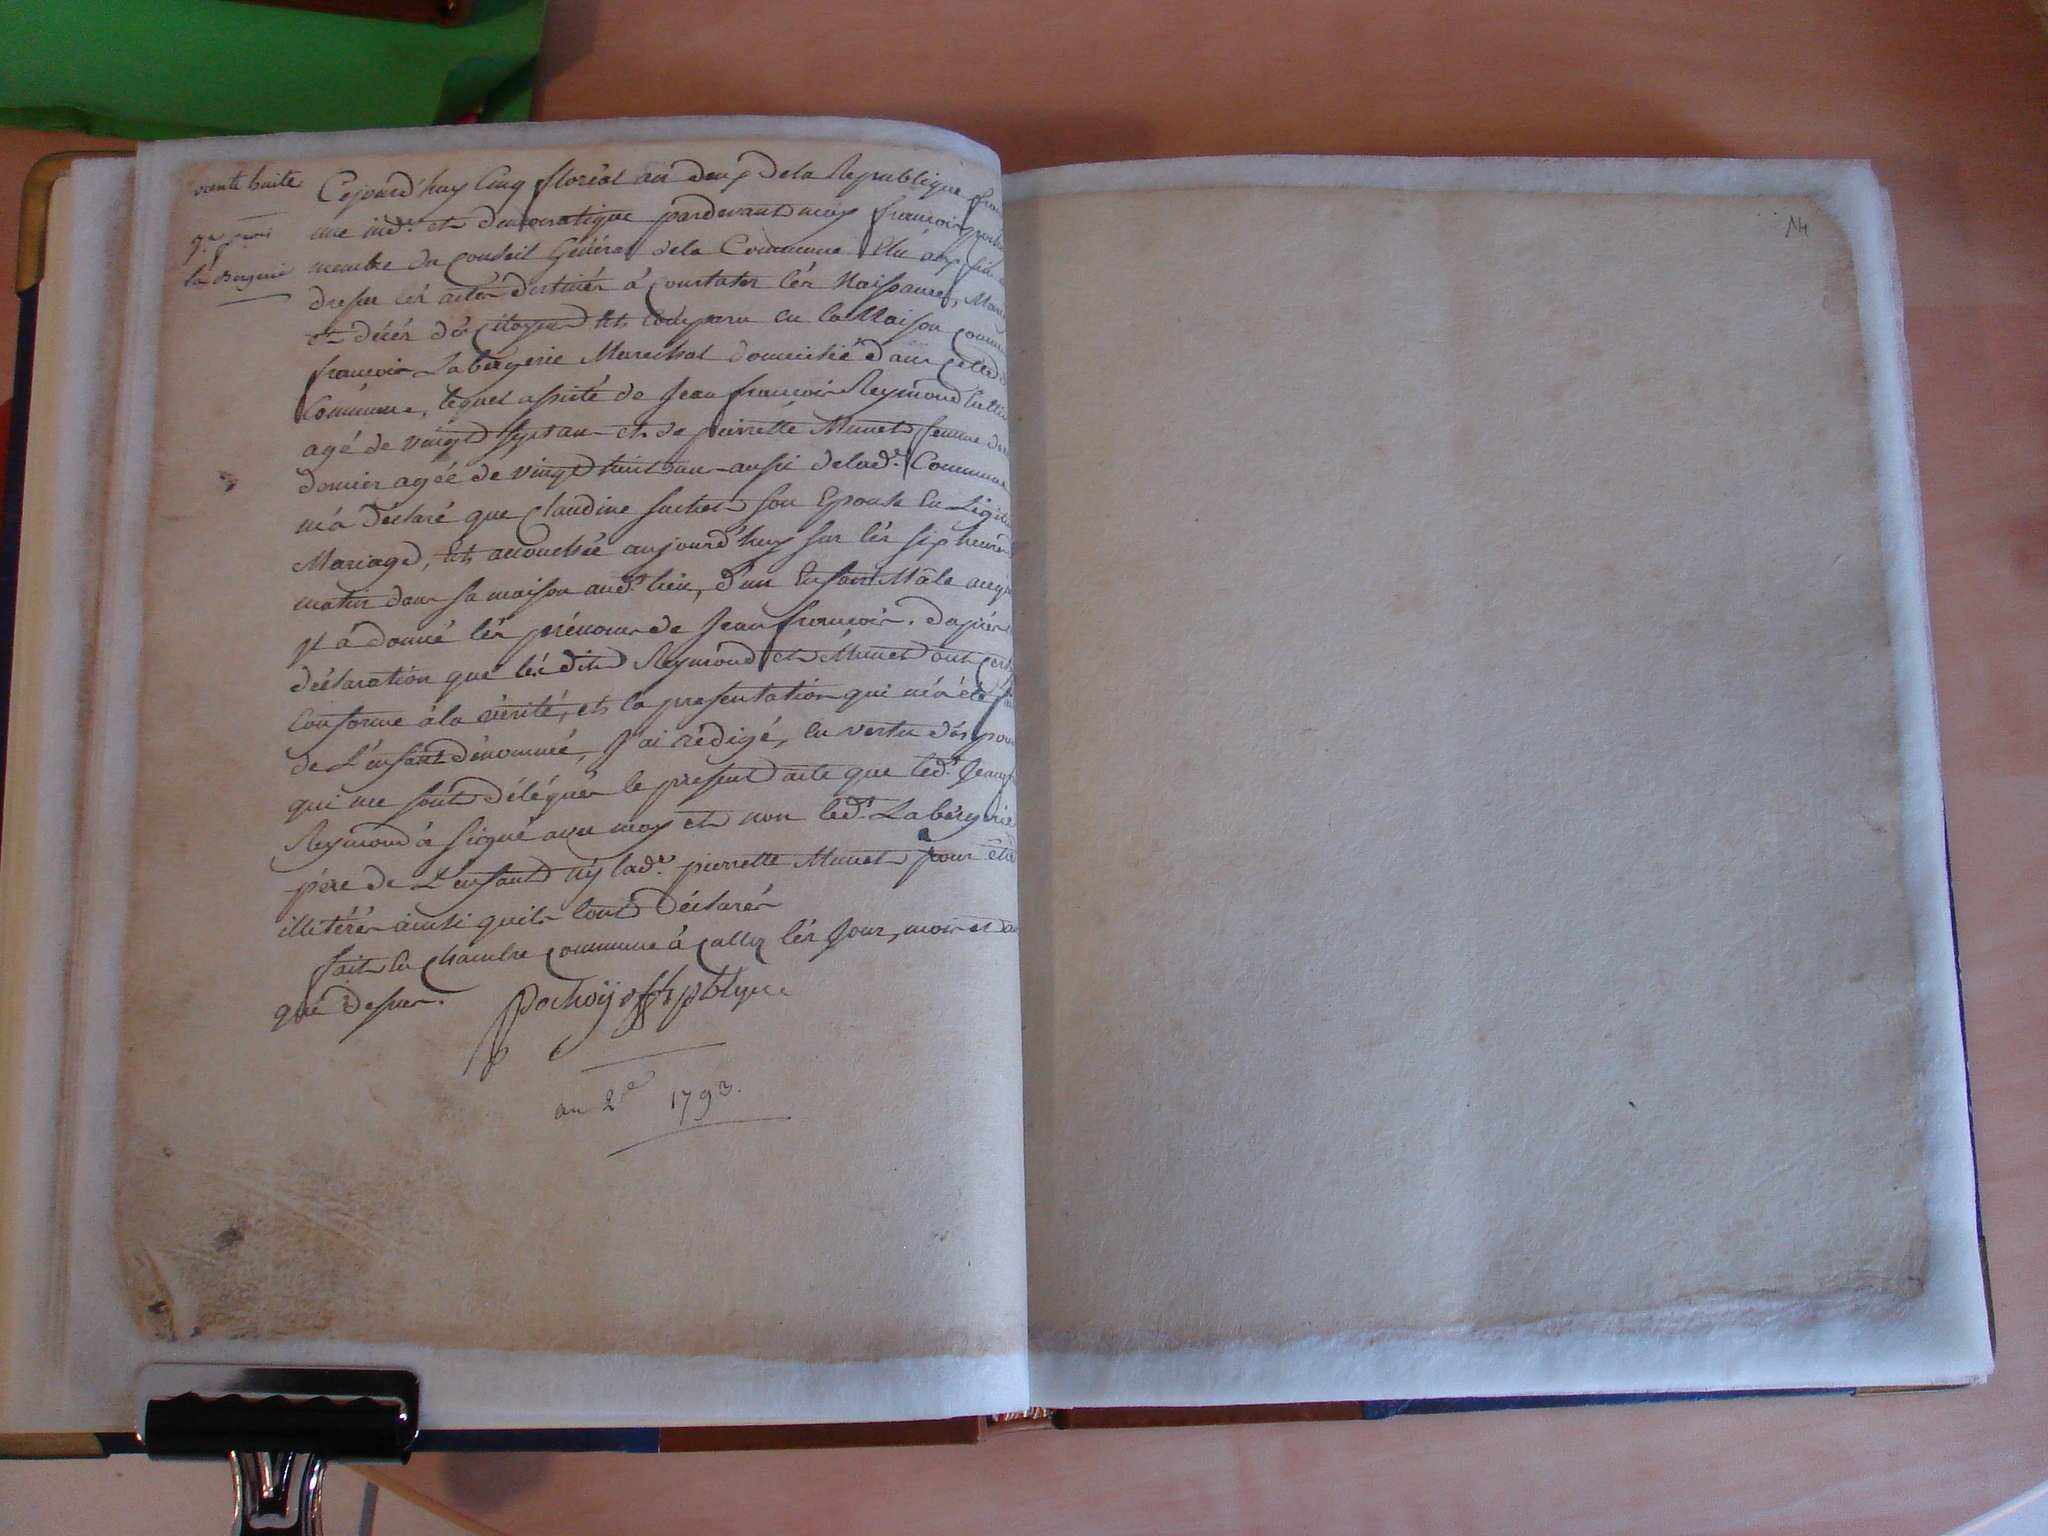 vante huite
jn fois
la Bergerie
Cejourd'huy Cinq floréal an deux de la Republique fran
une ind.e et democratique pardevant moy francois poch
membre du Conseil Général de la Commune Elu aux fin de
dresser lés actés déstinés à Constatér lés Naissances, Mari
et décés dés Citoyens Est Comparu en la Maison Commu
francois Labérgerie Marechal domicilié dans cette d
Commune, lequel assisté de Jean francois Reymond
agé de vingt sept ans et de pierrette Munet femme de ce
dernier agée de vingt huit ans aussi de lad.e Commune
m'a déclaré que Claudine Suchet son Epouse En Légit
Mariage, Est accouchée aujourd'huy sur lés six heures
matin dans sa maison aud.t lieu, d'un Enfant Mâle auq
Il a donné lés prénoms de Jean francois. d'aprés
déclaration que lés dits Reymond et Munet ont cert
Conforme á la vérité, et la presentation qui m'a été fa
de L'enfant dénommé, J'ai rédigé, en vertu dés pou
qui me sont délégués le present acte que led.t Jean f
Reymond a signé avec moy et non led.t Labérgerie
pére de L'enfant ny lad.e pierrette Munet pour étre
illitérés ainsi quils l'ont déclarés
fait en Chambre Commune á Cally lés Jour, mois et an
que dessus.
Pochoÿ off. pblique
an 2e 1793.
14